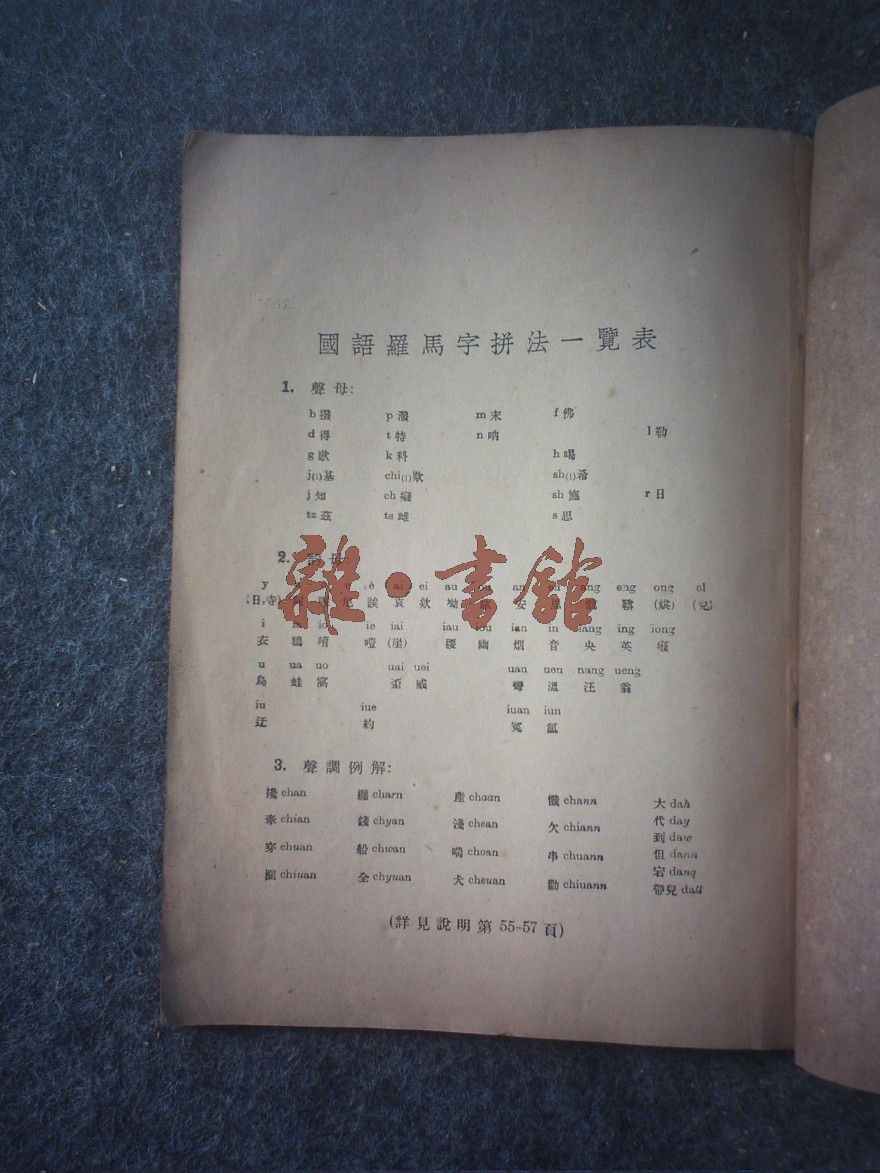 國語羅馬字拼法一覽表
1. 聲母:
b 撥 p 潑 m 末 f 佛
d 得 t 特 n 吶 l 勒
g 歌 k 科 h 喝
j(i) 基 ch(i) 欺 sh(i) 希
j 知 ch 癡 sh 施 r 日
tz 茲 ts 雌 s 思
2. 韵母
雜·書館
y è ai ei au an ang eng ong el
哀 欸 坳 安 (烘) (兒)
i ia io ie iai iau iou ian in iang ing iong
衣 鴉 唷 噎 (崖) 腰 幽 烟 音 央 英
u ua uo uai uei uan uen uang ueng
烏 蛙 窩 歪 威 彎 溫 汪 翁
iu iue iuan iun
迂 約 冤 氳
3. 聲調例解:
攙 chan 讒 charn 產 chaan 懺 chann 大 dah
牽 chian 錢 chyan 淺 chean 欠 chiann 代 day
到 daw
穿 chuan 船 chwan 喘 choan 串 chuann 但 dann
宕 danq
圈 chiuan 全 chyuan 犬 cheuan 勸 chiuann 帶兒 dall
(詳見說明第 55-57 頁)